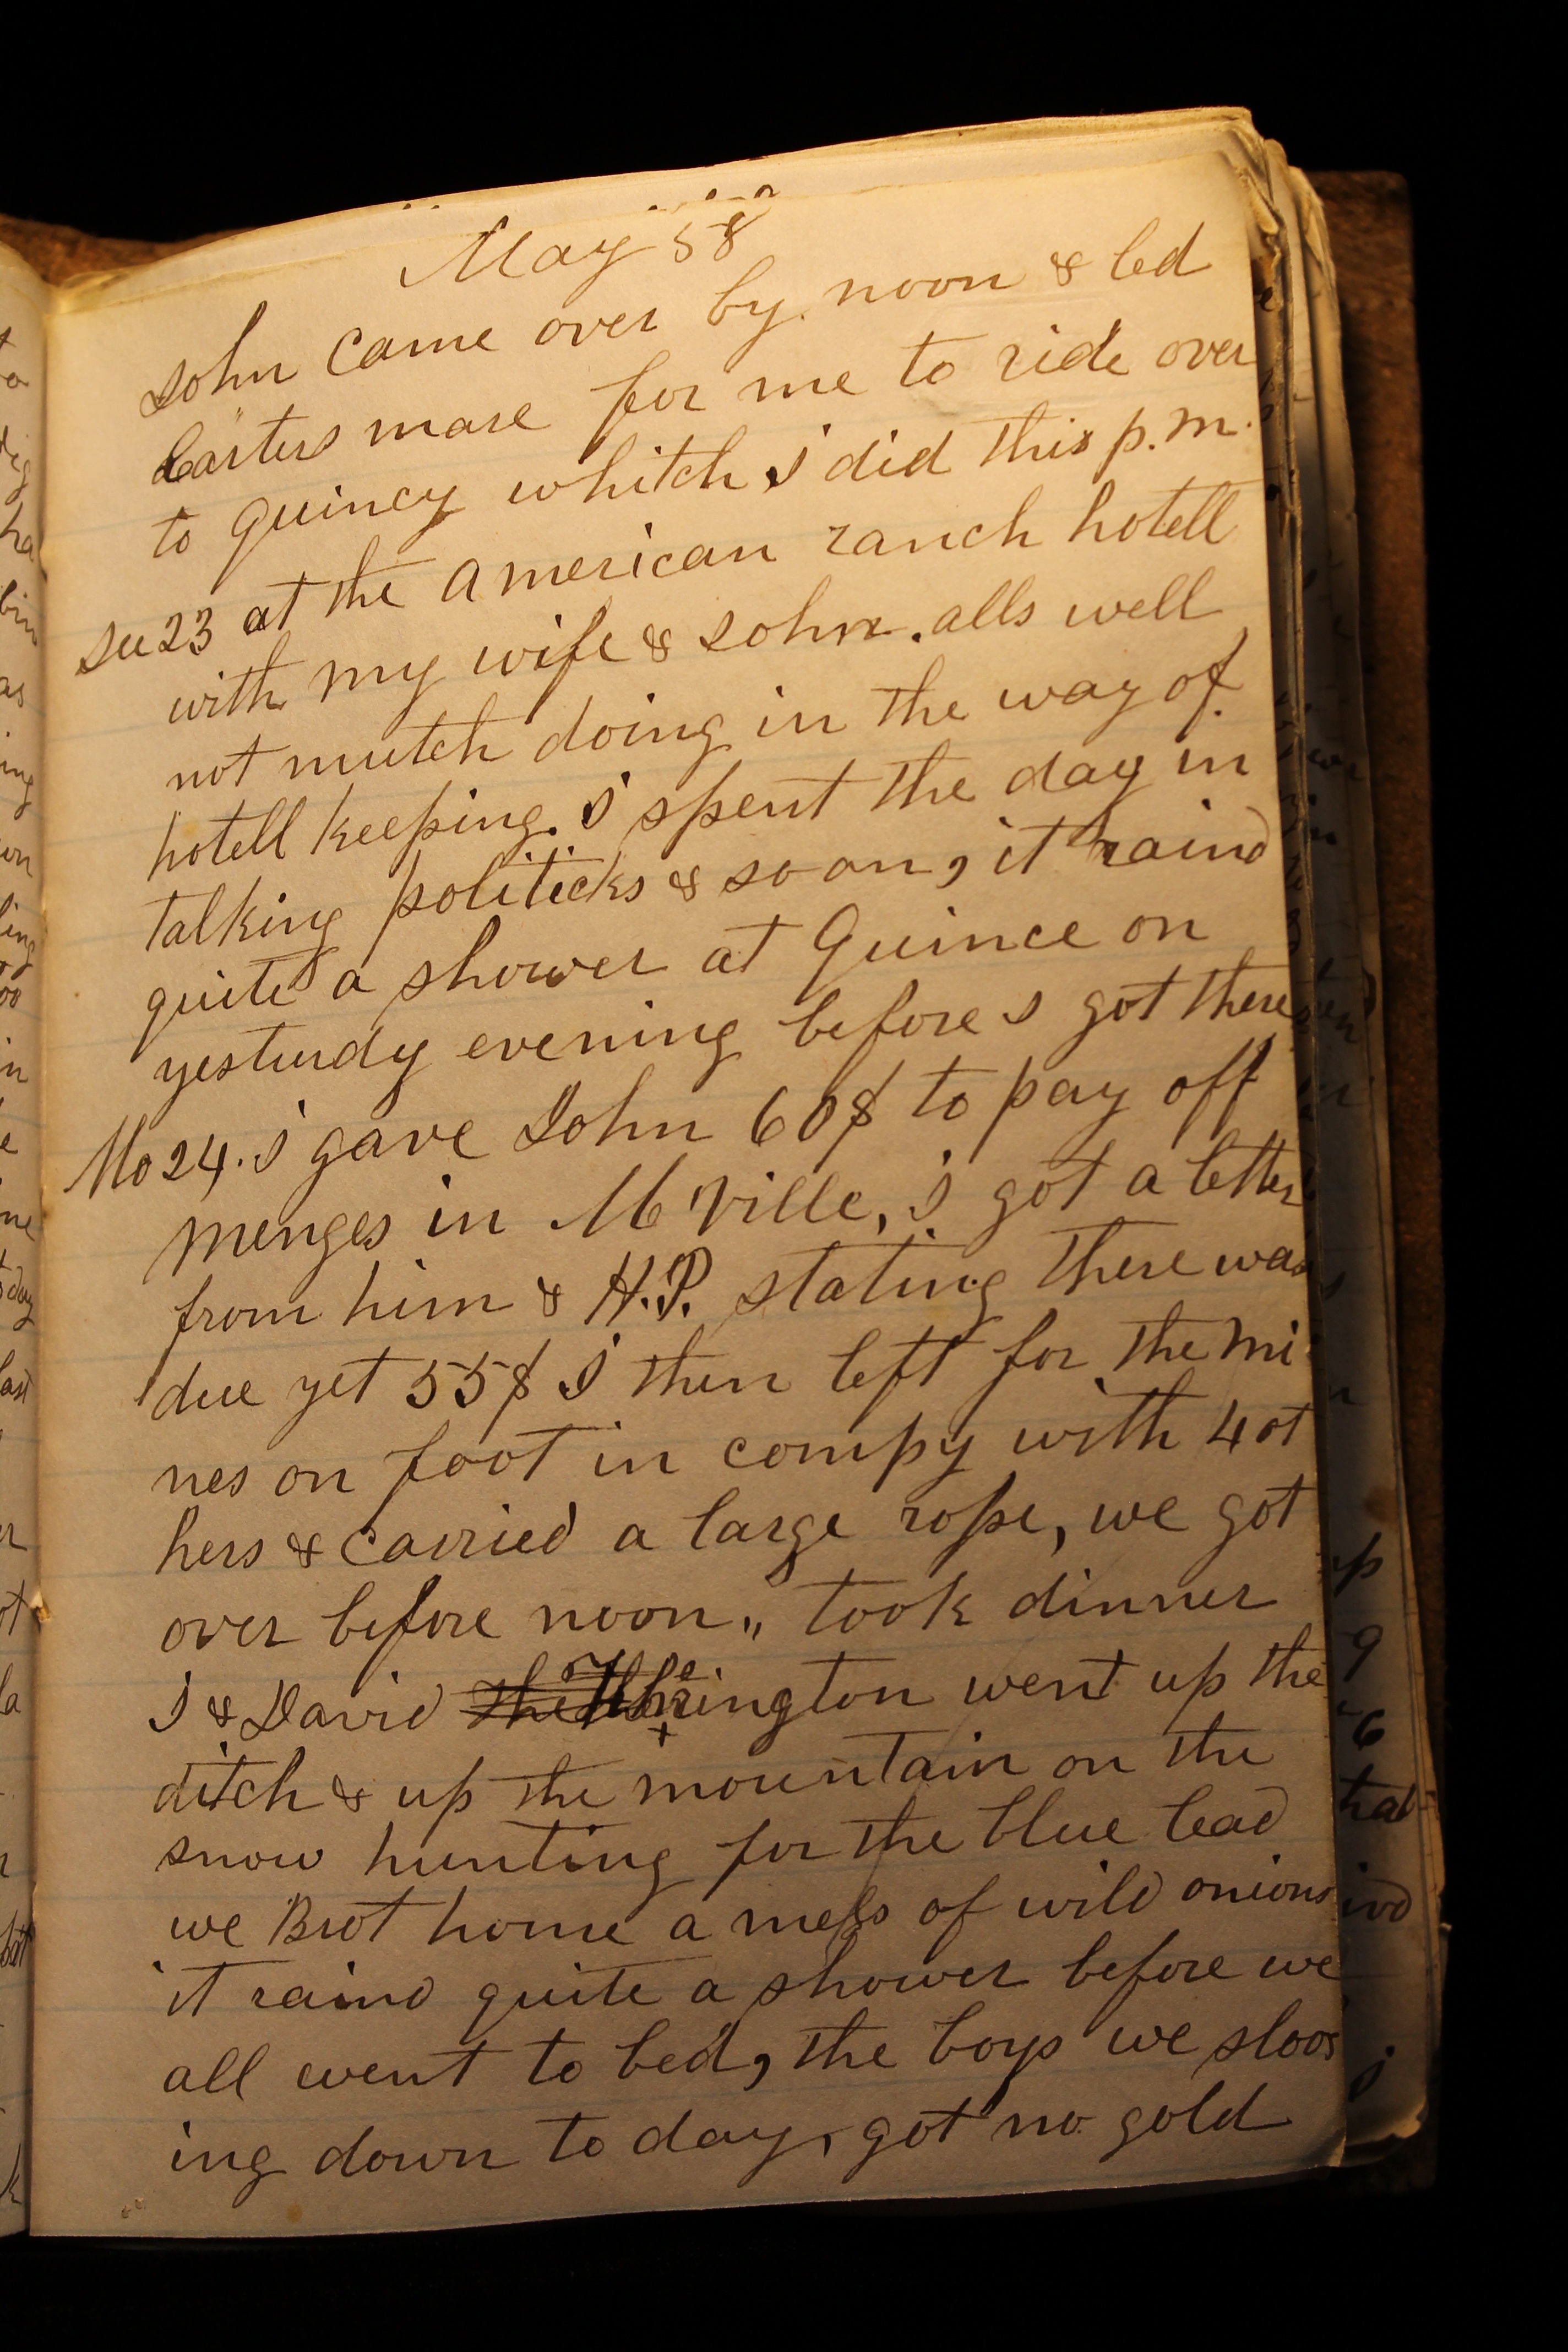 May 58
John Came over by noon & led
Carters mare for me to ride over
to quincy whitch i did this p.m.
Su 23 at the American ranch hotell
with my wife & John. alls well
not mutch doing in the way of
hotell keeping. i spent the day in
talking politicks & so on, it raind
quite a shower at Quince on
yesturdy evening before i got there
Mo 24. i gave John 60$ to pay off
menges in M Ville, i got a letter
from him & H.P. stating there was
due yet 55$ i then left for the mi
nes on foot in compy with 4 ot
hers & carried a large rope, we got
over before noon,, took dinner
i & David ington went up the
ditch & up the mountain on the
snow hunting for the blue lead
we Brot home a mess of wild onions
it raind quite a shower before we
all went to bed, the boys we sloos
ing down to day, got no gold